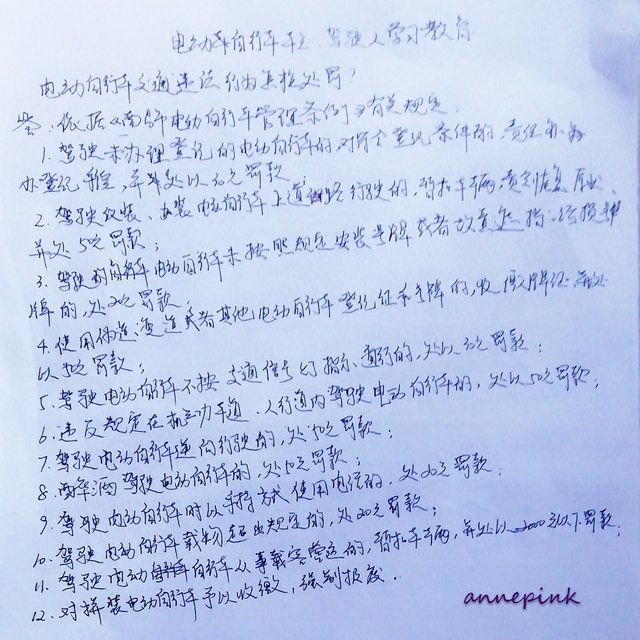 电动车自行车车主、驾驶人学习教育
电动自行车交通违法行为怎样处罚?
答:依据《南宁市电动自行车管理条例》有关规定
1. 驾驶未办理登记的电动自行车的,对符合登记条件的,责任办
办登记手续,并处以30元罚款;
2. 驾驶改装、加装电动自行车上道路行驶的,暂扣车辆,责令恢复原状,
并处50元罚款;
3. 驾驶的电动自行车未按照规定安装号牌或者故意遮挡、污损号
牌的,处20元罚款;
4. 使用伪造、变造或者其他电动自行车登记证号牌的,收缴牌证并处
以50元罚款;
5. 驾驶电动自行车不按交通信号灯指示通行的,处以30元罚款;
6. 违反规定在机动车道、人行道内驾驶电动自行车的,处以50元罚款;
7. 驾驶电动自行车逆向行驶的,处50元罚款;
8. 醉酒驾驶电动自行车的,处50元罚款;
9. 驾驶电动自行车时以手持方式使用电话的,处20元罚款;
10. 驾驶电动自行车载物超出规定的,处20元罚款;
11. 驾驶电动自行车从事载客营运的,暂扣车辆,并处以2000元以下罚款;
12. 对拼装电动自行车予以收缴,强制报废.
annepink